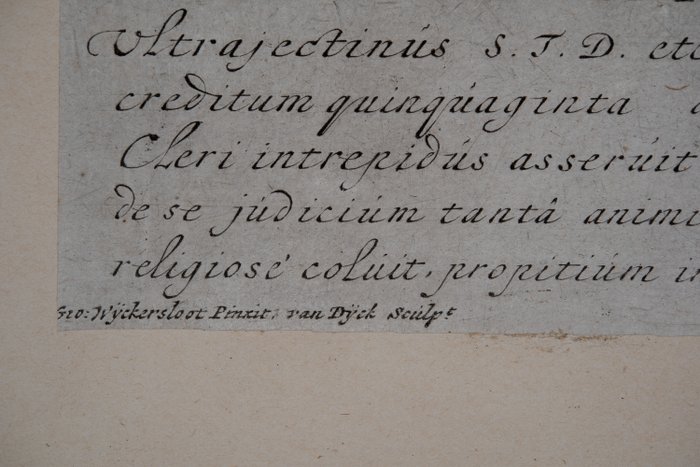 Ultrajectinús S. T. D. etc
creditum quinqúaginta
Cleri intrepidús asserúit
de se júdiciúm tantâ animi
religiosé colúit, propitiúm in
Gio: Wÿckersloot Pinxit, van Dÿck Sculpᵗ